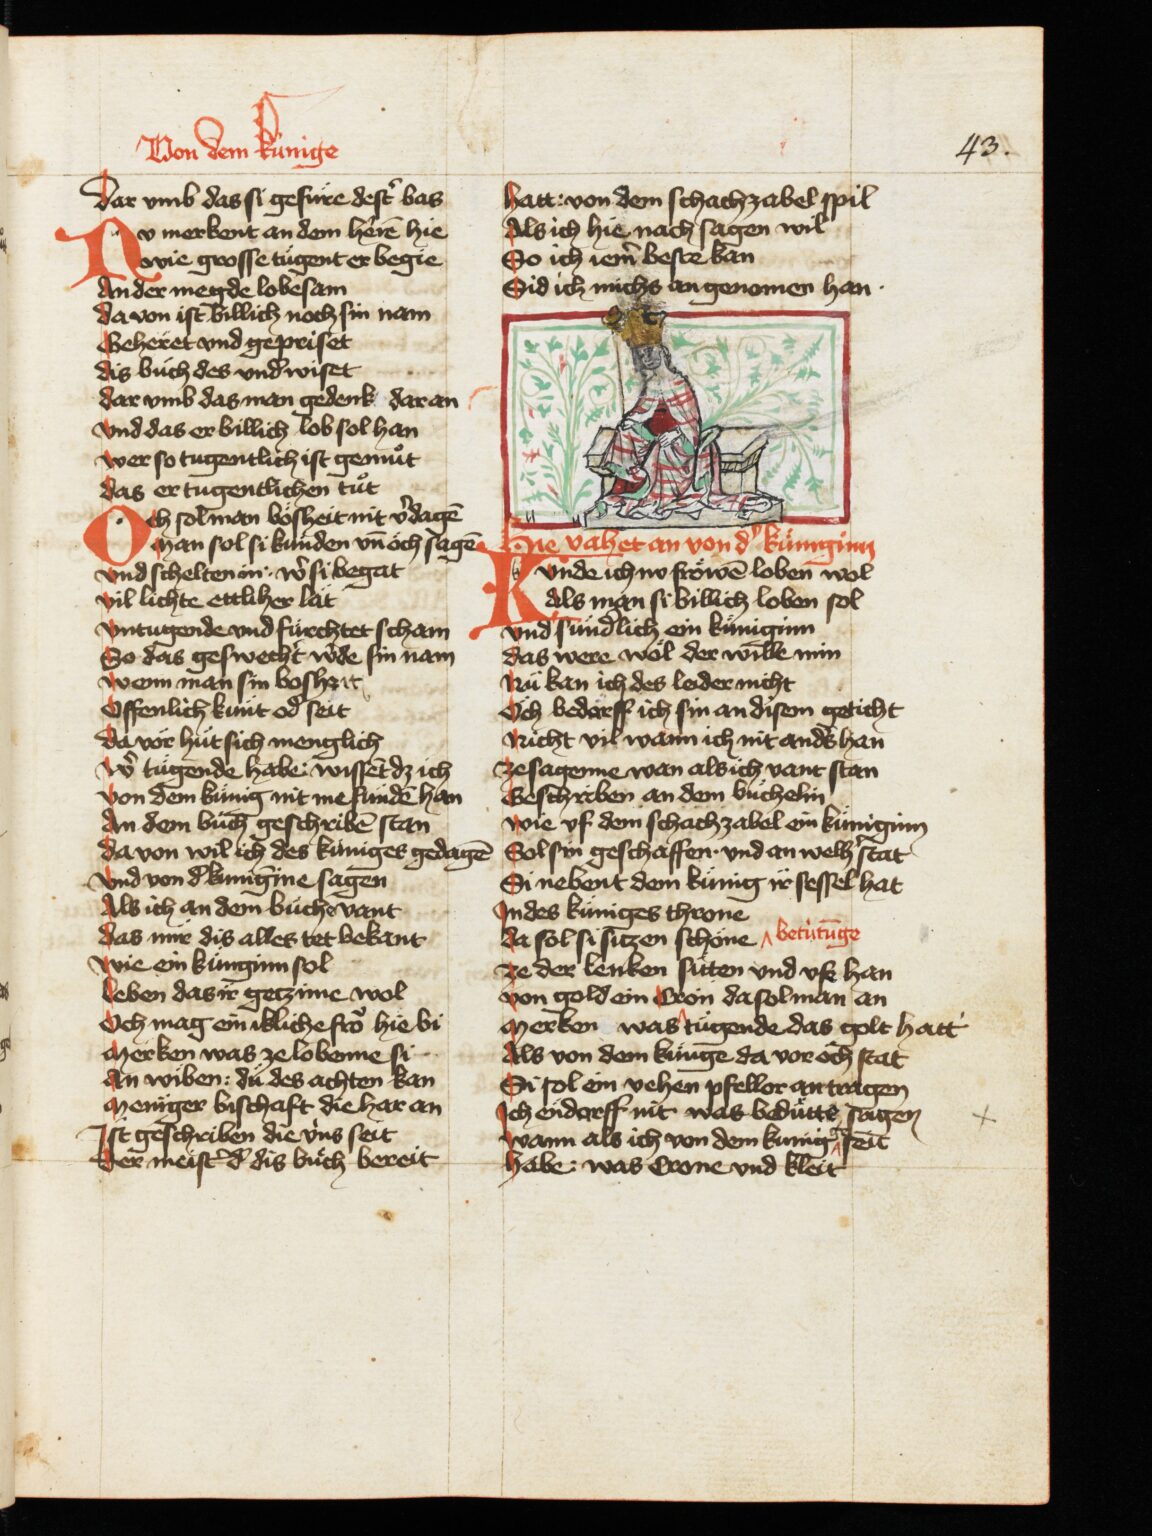 Von dem künige
43.
Dar vmb das si gefüre destˀ bas
Nv merkent an dem hˀrē hie
wie grosse tugent er begie
An der megde lobesam
da von ist billich noch sin nam
Geheret vnd gepriset
dis buͦch des vndˀwiset
dar vmb das man gedenk dar an
vnd das er billich lob sol han
wer so tugentlich ist gemuͦt
das er tugentlichen tuͦt
Och sol man bosheit nit vˀdagē
Man sol si künden vn̄ och sagē
vnd schelten in. wˀ si begat
vil lichte ettlicher lat
vntugende vnd fürchtet scham
So das geswechˀt wˀde sin nam
wenn man sin bosheit
Offenlich kuͥnt odˀ seit
da vor huͤt sich menglich
wˀ tugende habe: wissēt dz ich
von dem künig nit me fundē han
An dem buͦch geschribē stan
da von wil ich des küniges gedagē
vnd von dˀ künigine sagen
Als ich an dem buͦche vant
das mir dis alles tet bekant
wie ein künginn sol
leben das ir getzime wol
Och mag ein ikliche frǒ hie bi
Merken was ze lobenne si
An wiben: dü des achten kan
Meniger bischaft die har an
Ist geschriben die vns seit
Der meistˀ dˀ dis buͦch bereit
hatt: von dem schachzabel spil
Als ich hie nach sagen wil
So ich iemˀ beste kan
Sid ich michs angenomen han.
Hie vahet an von dˀ künginn
Kunde ich nv frǒwē loben wol
Als man si billich loben sol
vnd sundˀlich ein küniginn
das were wol der wille min
Nu kan ich des leider nicht
Och bedarff ich sin an disem geticht
Nicht vil wann ich nit andˀs han
ze sagenne wan als ich vant stan
Geschriben an dem buͤchelin
wie vf dem schachzabel ein küniginn
Sol sin geschaffen. vnd an welhˀ stat
Si nebent dem künig ir sessel hat
In des küniges throne
da sol si sitzen schone
betütūge
ze der lenken sitten vnd vfe han
von gold ein Cron da sol man an
Merken was tugende das golt hatt
Als von dem künge da vor och stat
Si sol ein vehen pfellor an tragen
Ich endarff nit was bedütte sagen
wann als ich von dem künig geseit
habe: was Crone vnd kleit